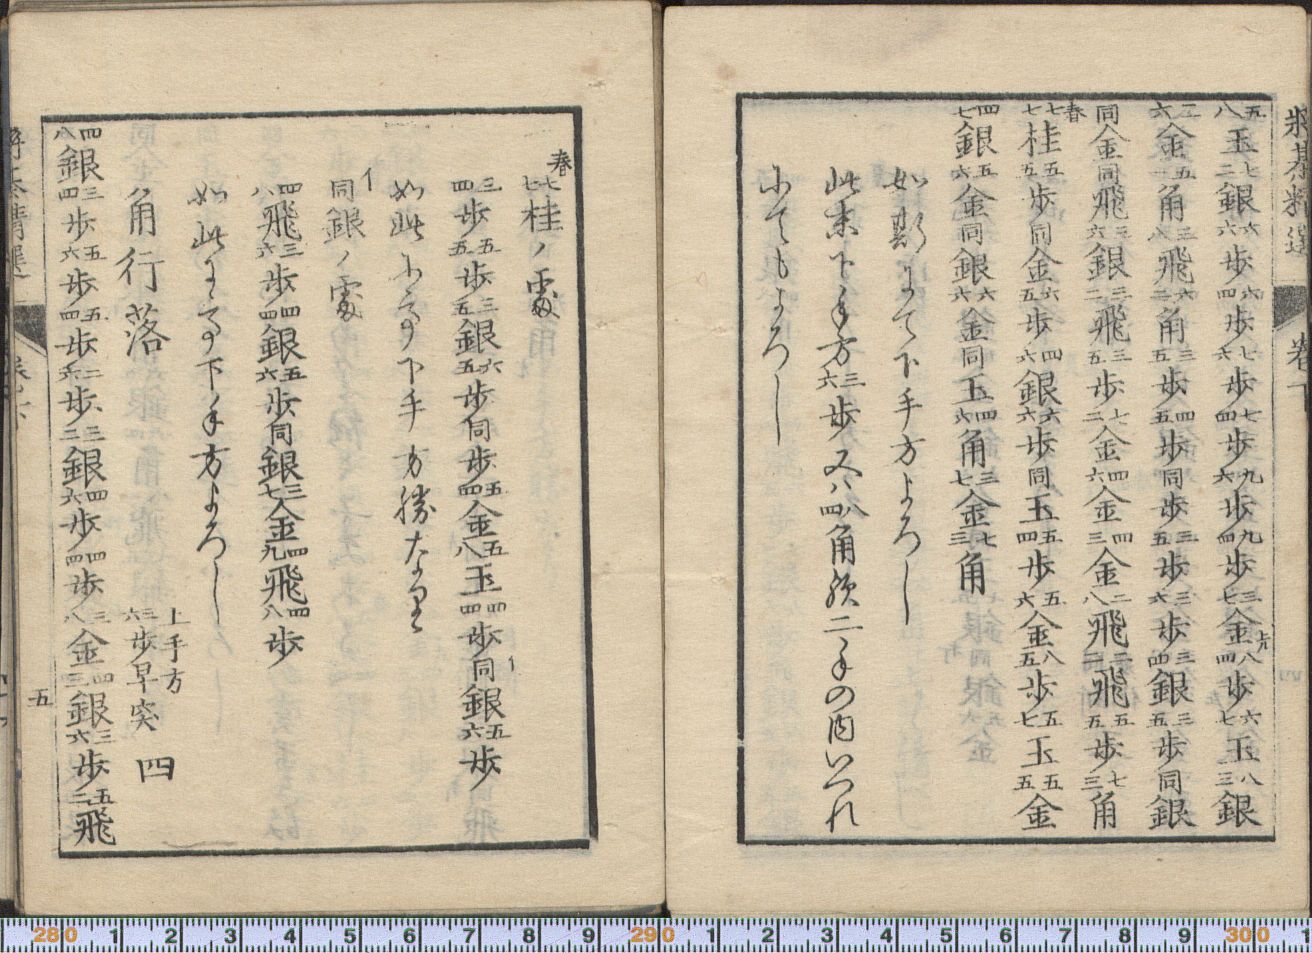 將棊精選 卷下
五八玉 七二銀 六六歩 六四歩 七六歩 七四歩 九六歩 九四歩 三七金 八四歩 六七玉 八三銀
二六金 五一角 三八飛 六二角 三五歩 四五歩 同歩 三五歩 三六歩 三四銀 三五歩 同銀
同金 同飛 三六銀 三二飛 三五歩 七二金 四六金 四三金 二八飛 飛 五五歩 七三角
春 七七桂 五五歩 同金 六五歩 四六銀 六六歩 同玉 五四歩 五六金 八五歩 五七玉 五五金
四七銀 五六金 同銀 六六金 同玉 四六角 三七金 七三角
如斯にて下手方よろし
此末下手方三六歩又ハ八四角成二手の内いつれ
にてもよろし
春 七七桂ノ處
三四歩 五五歩 三五銀 六五歩 同歩 五四金 五八玉 四四歩 同銀 五六歩
如此にて下手方勝なり
イ 同銀ノ處
四八飛 三六歩 四四銀 五六歩 同銀 三七金 四九飛 四八歩
如此にて下手方よろし
角行落 上手方 三六歩早突 四
四八銀 三四歩 五六歩 五四歩 二六歩 三二銀 四六歩 四四歩 三八金 四三銀 三六歩 五二飛
五